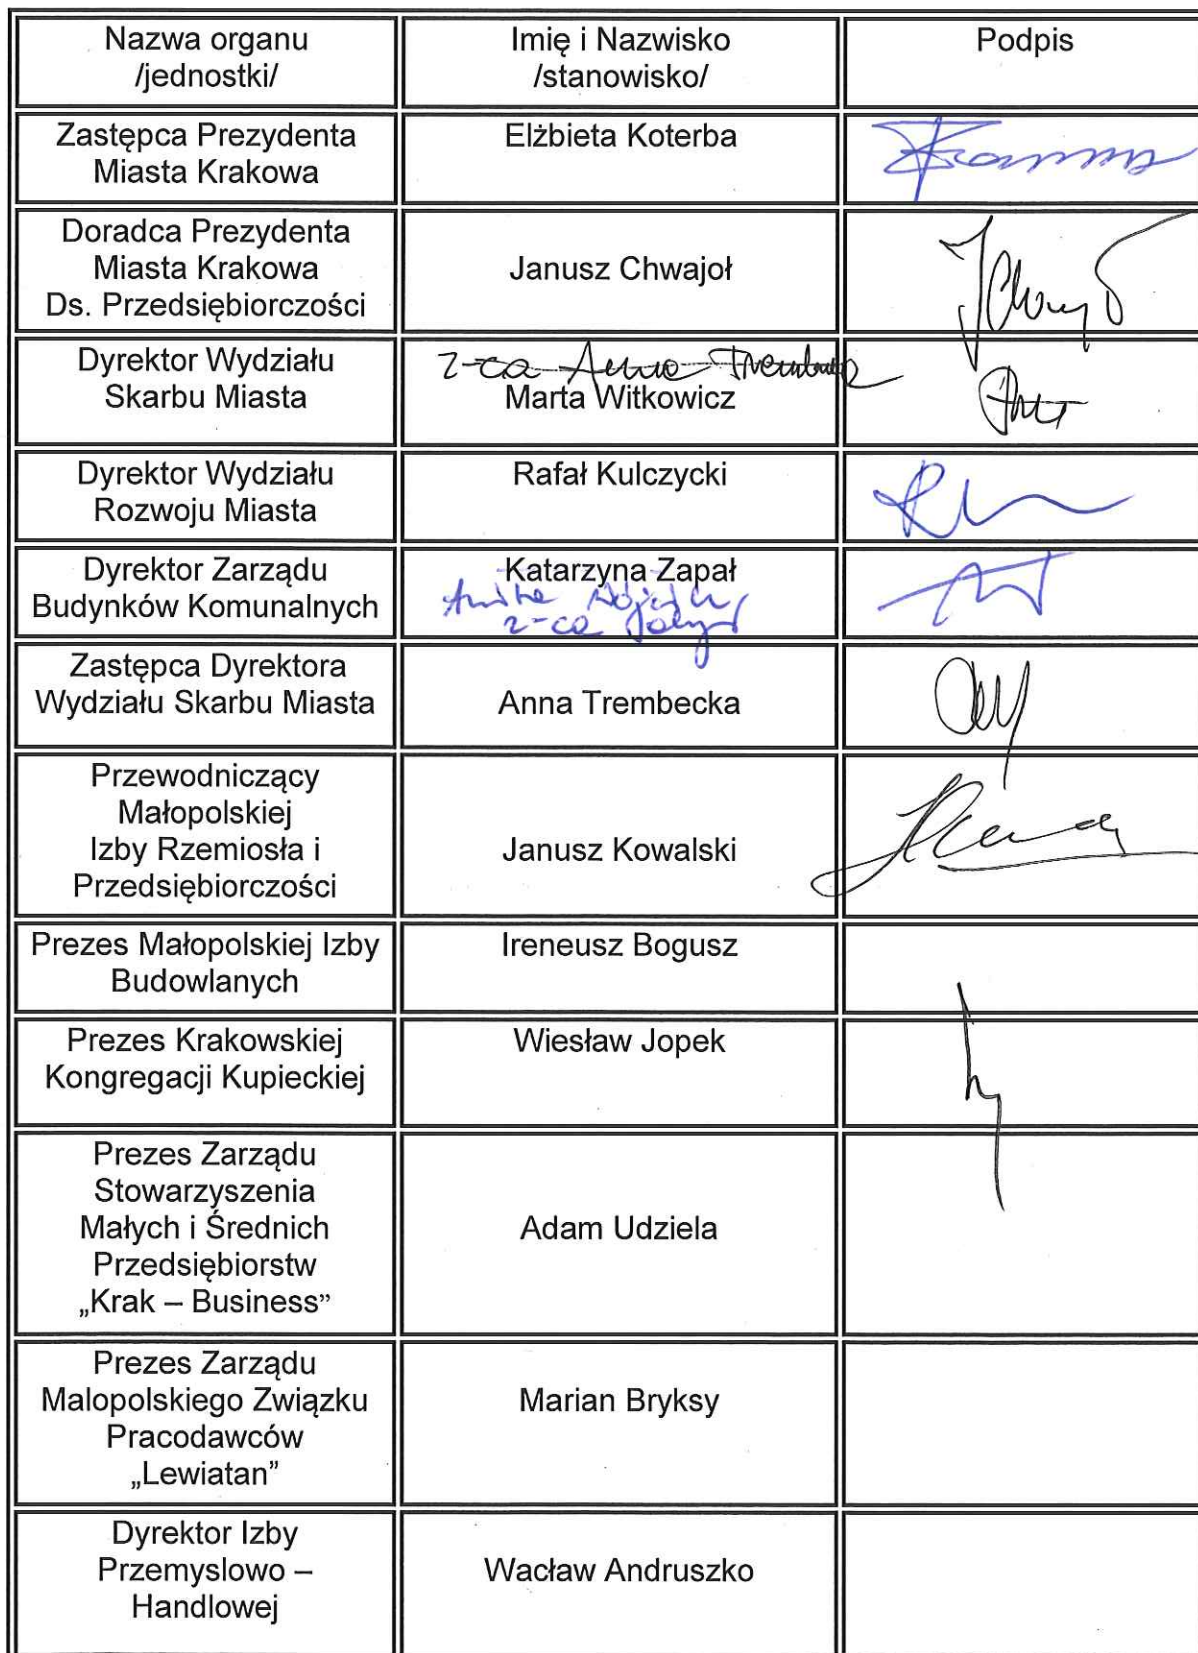 Nazwa organu
/jednostki/
Imię i Nazwisko
/stanowisko/
Podpis
Zastępca Prezydenta
Miasta Krakowa
Elżbieta Koterba
Doradca Prezydenta
Miasta Krakowa
Ds. Przedsiębiorczości
Janusz Chwajoł
Dyrektor Wydziału
Skarbu Miasta
z-ca Anna
Marta Witkowicz
Dyrektor Wydziału
Rozwoju Miasta
Rafał Kulczycki
Dyrektor Zarządu
Budynków Komunalnych
Katarzyna Zapał
z-ca
Zastępca Dyrektora
Wydziału Skarbu Miasta
Anna Trembecka
Przewodniczący
Małopolskiej
Izby Rzemiosła i
Przedsiębiorczości
Janusz Kowalski
Prezes Małopolskiej Izby
Budowlanych
Ireneusz Bogusz
Prezes Krakowskiej
Kongregacji Kupieckiej
Wiesław Jopek
Prezes Zarządu
Stowarzyszenia
Małych i Średnich
Przedsiębiorstw
„Krak – Business”
Adam Udziela
Prezes Zarządu
Malopolskiego Związku
Pracodawców
„Lewiatan”
Marian Bryksy
Dyrektor Izby
Przemyslowo –
Handlowej
Wacław Andruszko